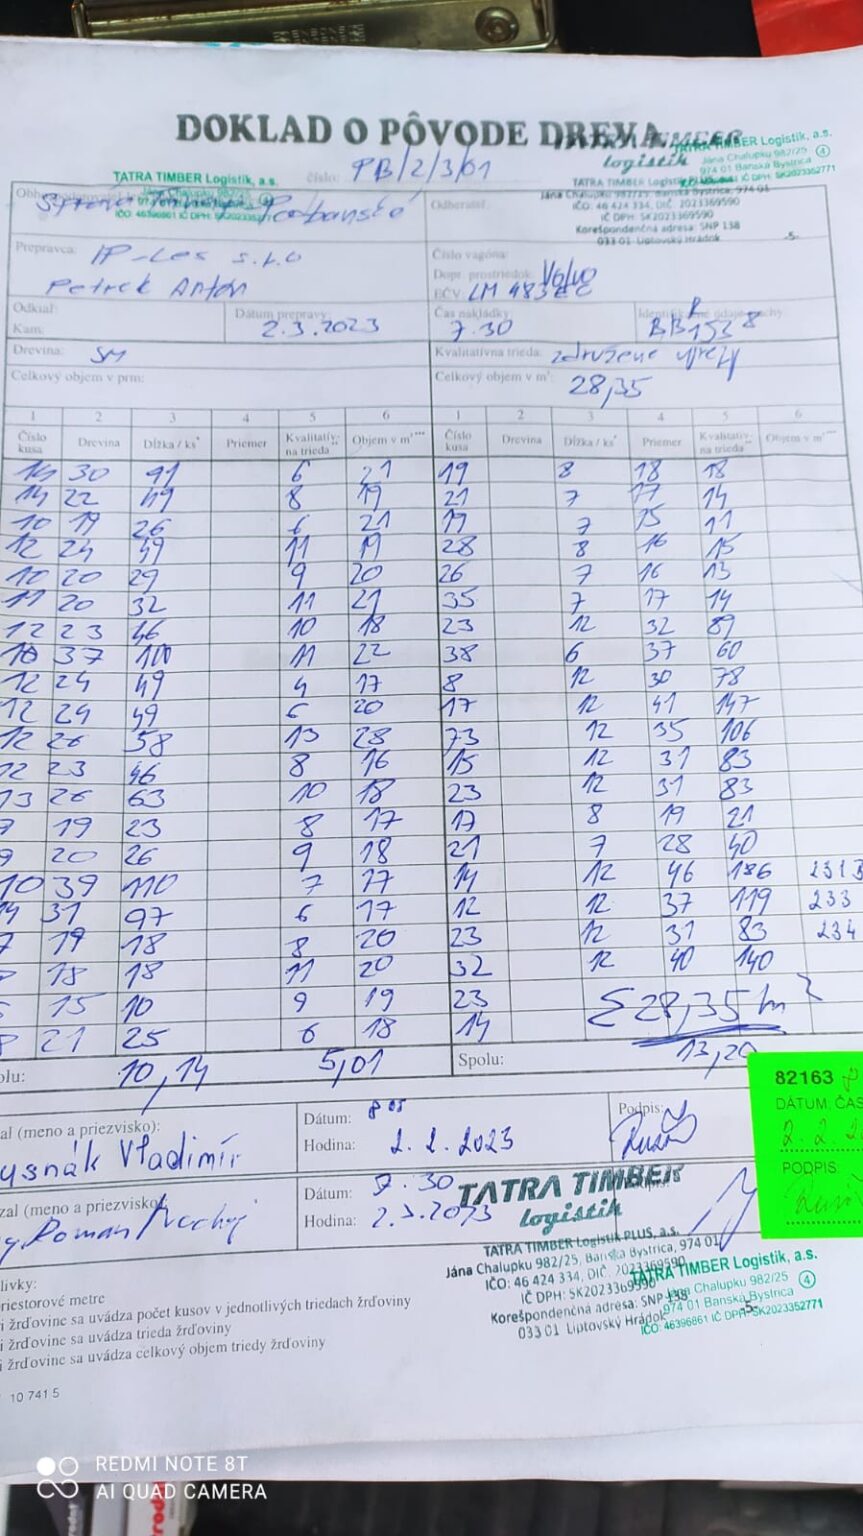 DOKLAD O PÔVODE DREVA
TATRA TIMBER
logistik
TATRA TIMBER Logistik, a.s.
Jána Chalupku 982/25
974 01 Banská Bystrica
4
TATRA TIMBER Logistik, a.s.
číslo: PB/2/3/01
IČO: 46396861 IČ DPH: SK2023352771
Odberateľ:
IČO: 46 424 334, DIČ: 2023369590
IČ DPH: SK2023369590
Korešpondenčná adresa: SNP 138
033 01 Liptovský Hrádok
-5-
Prepravca: IP-Les s.r.o
Petrek Anton
Číslo vagóna:
Dopr. prostriedok: Volvo
EČV: LM 483EC
Odkiaľ:
Kam:
Dátum prepravy:
2.3.2023
Čas nakládky:
7.30
Drevina: SM
Kvalitatívna trieda: združené výrezy
Celkový objem v prm:
Celkový objem v m³: 28,35
1 2 3 4 5 6 1 2 3 4 5 6
Číslo kusa Drevina Dĺžka / ks* Priemer Kvalitatív- na trieda** Objem v m³*** Číslo kusa Drevina Dĺžka / ks* Priemer Kvalitatív- na trieda** Objem v m³***
14 30 91 6 21 19 8 18 18
14 22 49 8 19 21 7 17 14
10 19 26 6 21 19 7 15 11
12 24 49 11 19 28 8 16 15
10 20 29 9 20 26 7 16 13
11 20 32 11 21 35 7 17 14
12 23 46 10 18 23 12 32 89
10 37 100 11 22 38 6 37 60
12 24 49 4 17 8 12 30 78
12 24 49 6 20 17 12 41 147
12 26 58 13 28 73 12 35 106
12 23 46 8 16 15 12 31 83
13 26 63 10 18 23 12 31 83
19 23 8 17 17 8 19 21
9 20 26 9 18 21 7 28 40
10 39 110 7 17 14 12 46 186
14 31 97 6 17 12 12 37 119 233
7 19 18 8 20 23 12 31 83 234
18 18 11 20 32 12 40 140
15 10 9 19 23 Σ 28,35 m³
21 25 6 18 14
olu: 10,14 5,01 Spolu: 13,20
zal (meno a priezvisko):
usnák Vladimír
Dátum: 8 05
Hodina: 2.2.2023
Podpis:
82163
DÁTUM, ČAS
PODPIS
zal (meno a priezvisko)
Roman
Dátum: 7.30
Hodina: 2.3.2023
TATRA TIMBER
logistik
TATRA TIMBER Logistik PLUS, a.s.
Jána Chalupku 982/25, Banská Bystrica, 974 01
IČO: 46 424 334, DIČ: 2023369590
IČ DPH: SK2023369590
Korešpondenčná adresa: SNP 138
033 01 Liptovský Hrádok
-5-
TATRA TIMBER Logistik, a.s.
Jána Chalupku 982/25
4
974 01 Banská Bystrica
IČO: 46396861 IČ DPH: SK2023352771
livky:
riestorové metre
i žrďovine sa uvádza počet kusov v jednotlivých triedach žrďoviny
i žrďovine sa uvádza trieda žrďoviny
i žrďovine sa uvádza celkový objem triedy žrďoviny
10 741 5
REDMI NOTE 8T
AI QUAD CAMERA